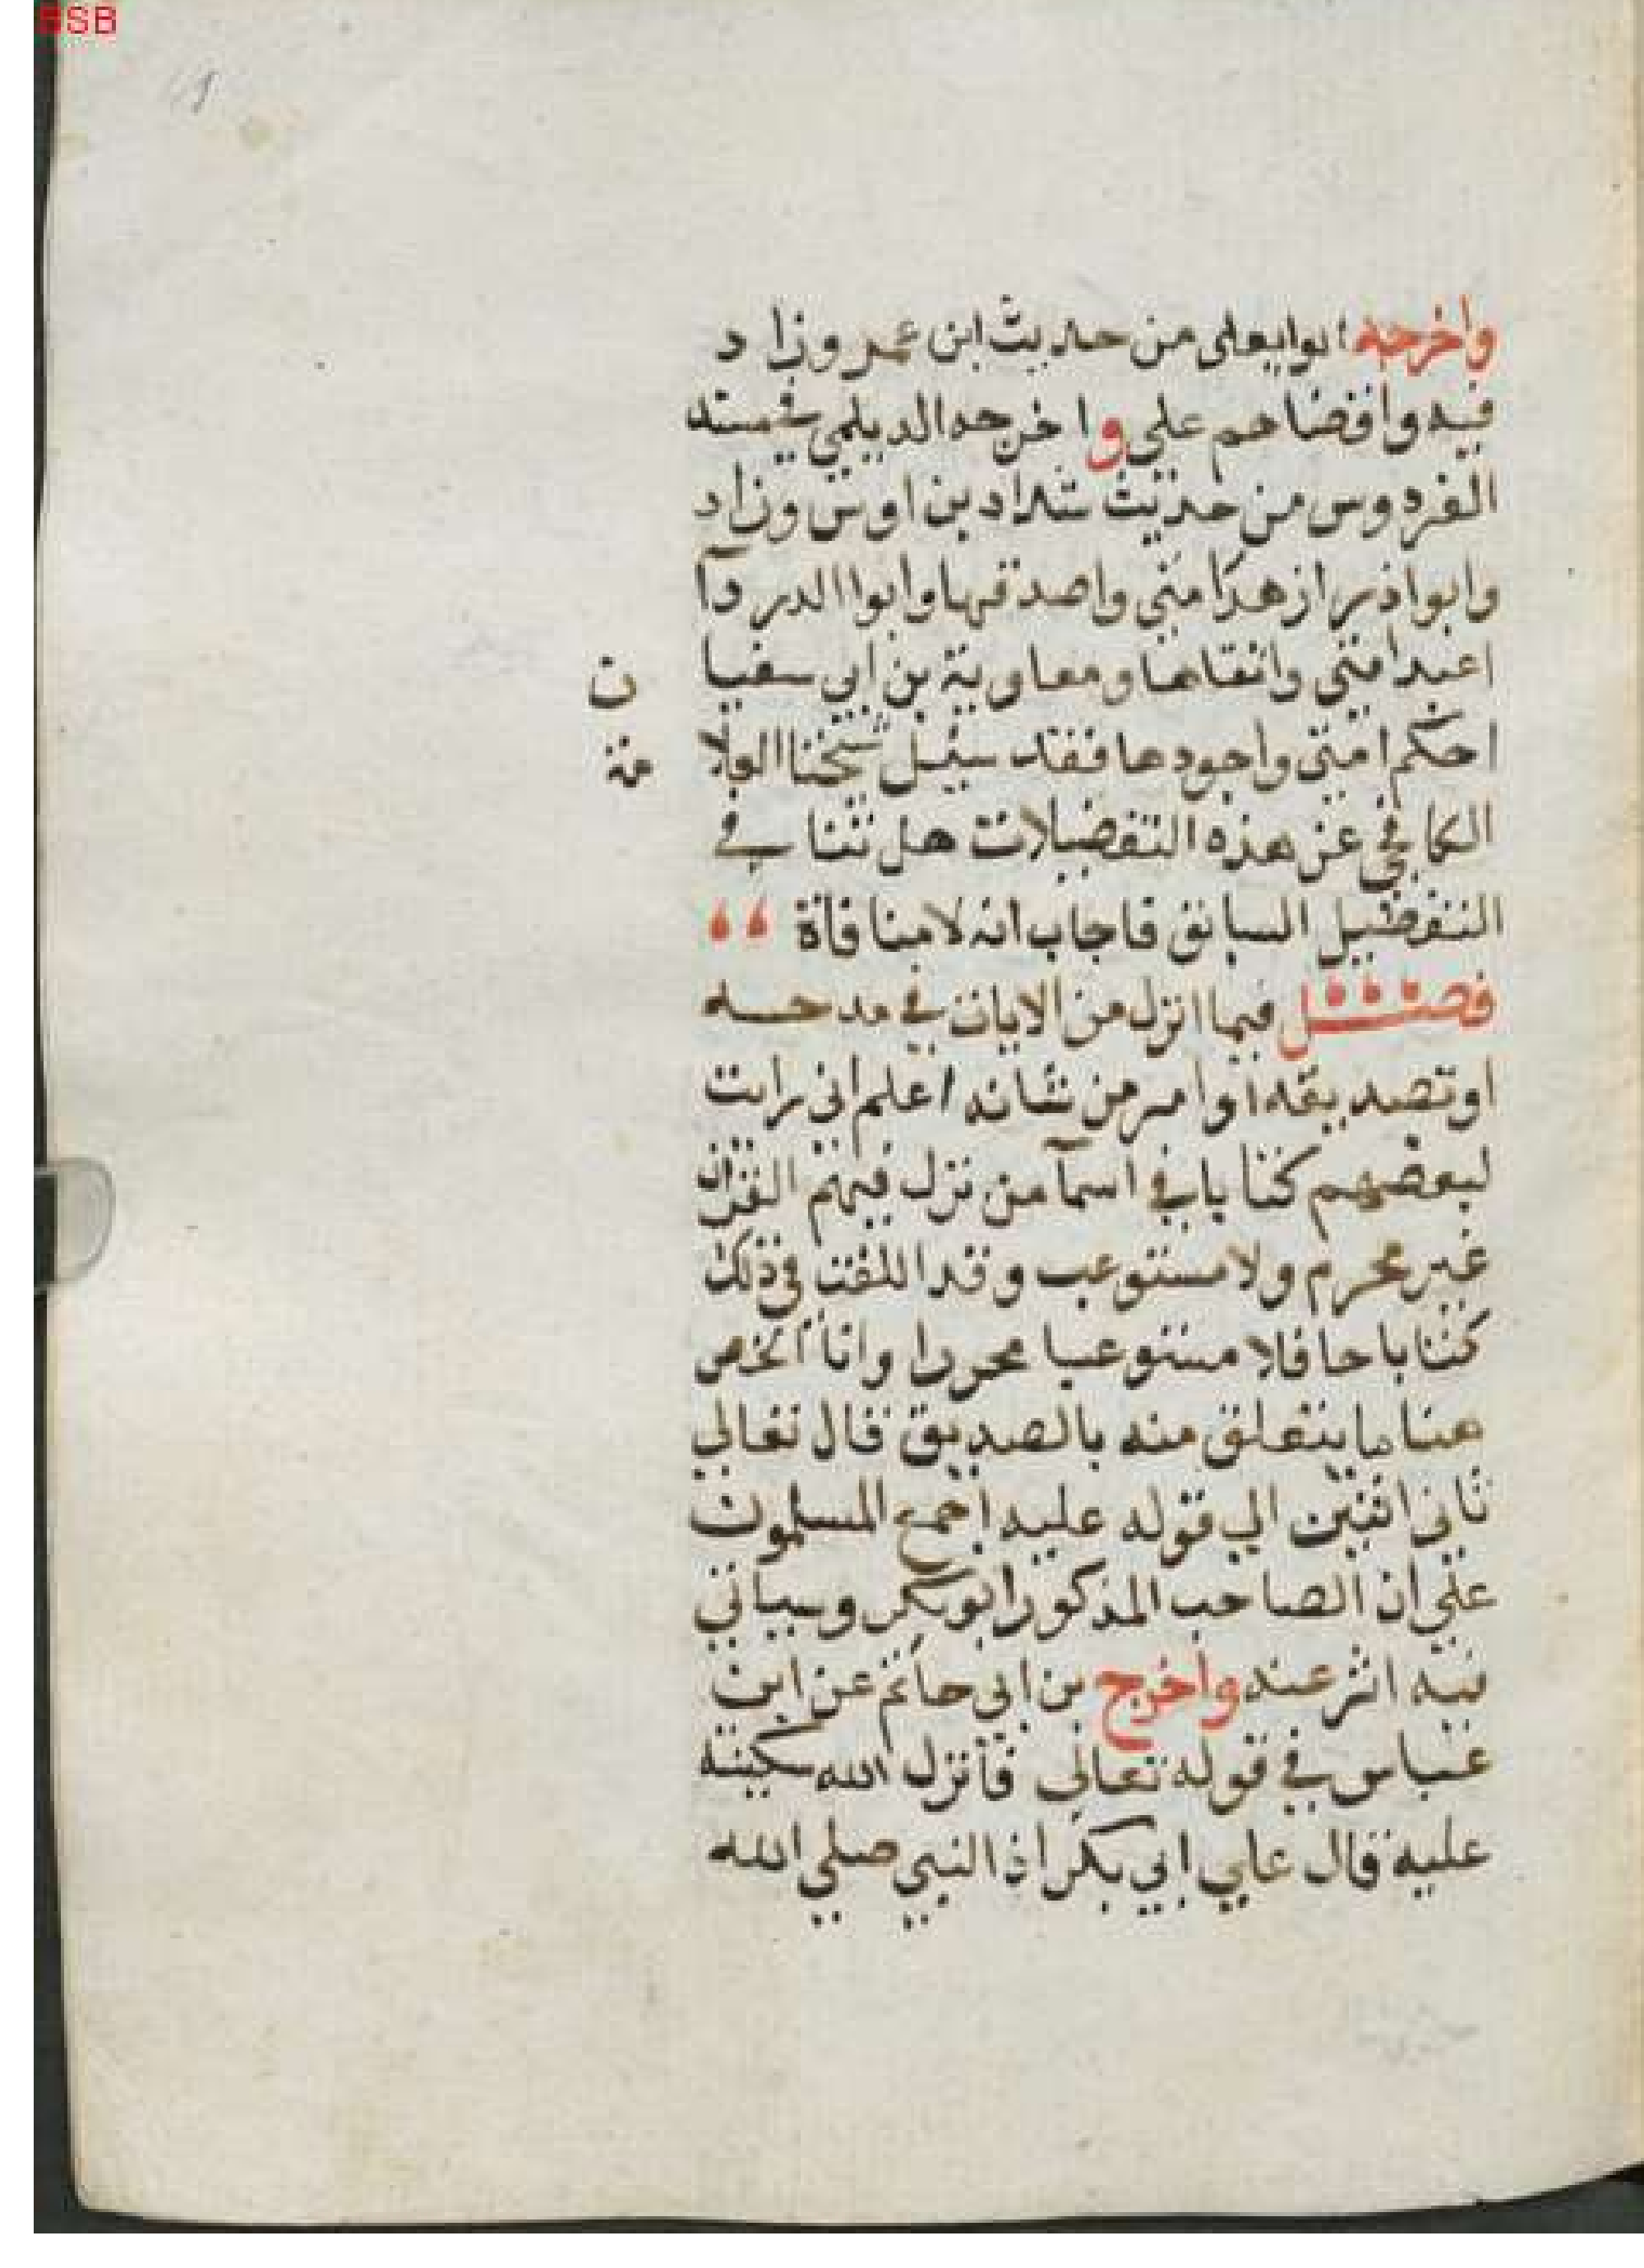 BSB
واخرجه ابوايعلى من حديث ابن عمر وزاد
فيه واقضاهم علي واخرجه الديلمي في مسند
الفردوس من حديث شداد بن اوس وزاد
وابواذر ازهد امتي واصدقها وابوا الدردآ
اعبد امتي واتقاها ومعاوية بن ابي سفيان
احكم امتي واجودها فقد سئيل شيخنا العلامة
الكافجي عن هذه التفضيلات هل تنافي
التفضيل السابق فاجاب انه لا منافاة
فصل فيما انزل من الايات في مدحه
او تصديقه او امر من شانه اعلم اني رايت
لبعضهم كتابا في اسمآ من نزل فيهم القران
غير محرم ولا مستوعب وقد اللفت في ذلك
كتابا حافلا مستوعبا محررا وانا الخص
هنا ما يتعلق منه بالصديق قال تعالي
ثاني اثنين الي قوله عليه اجمع المسلمون
علي ان الصاحب المذكور ابو بكر وسياتي
فيه اثر عنه واخرج بن ابي حاتم عن ابن
عباس في قوله تعالي فانزل الله سكينته
عليه قال علي ابي بكر اذ النبي صلي الله